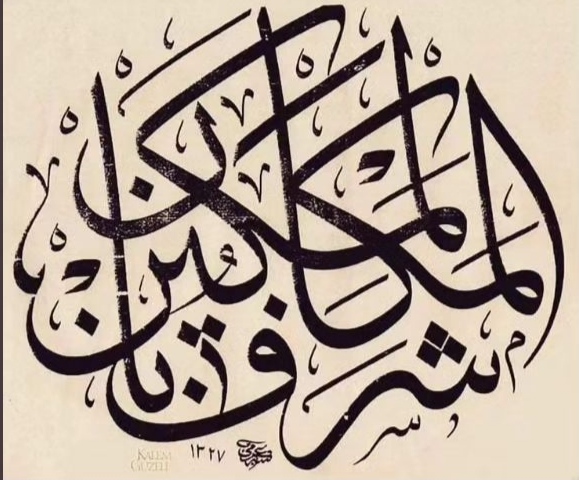 شرف المكان بالمكين
١٣٢٧
KALEM
GÜZELİ